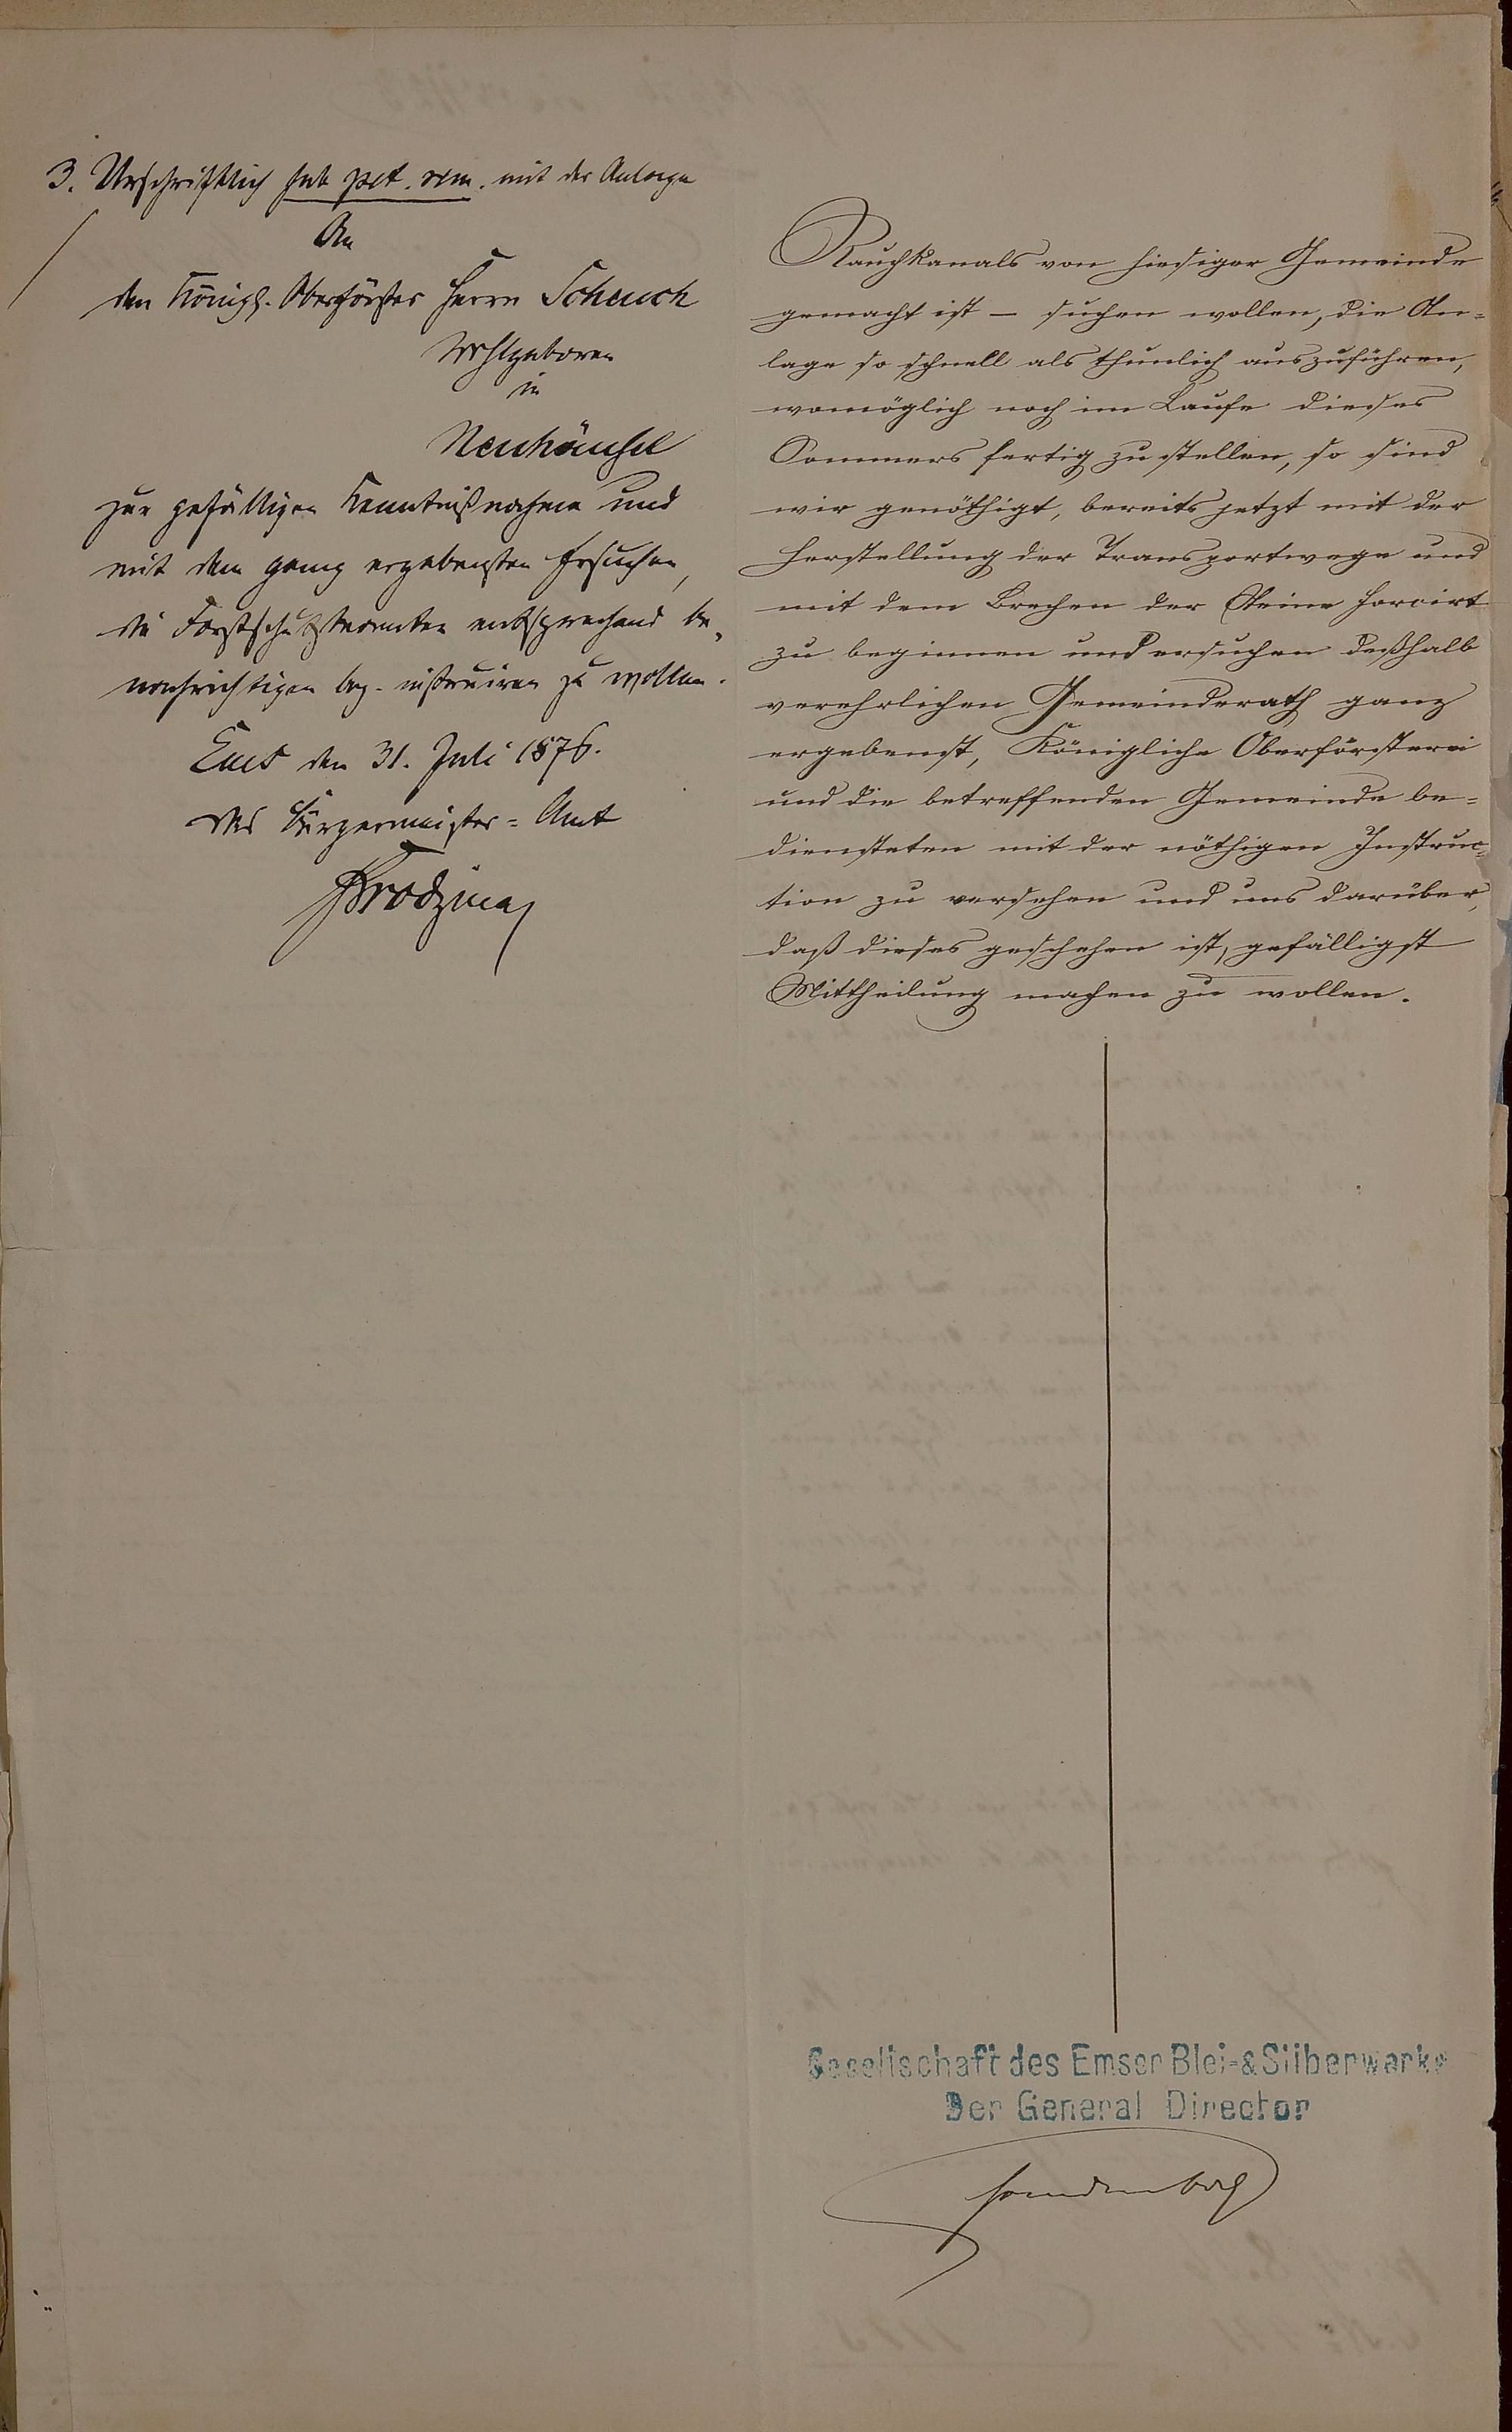 3. Urschriftlich sub pet. rem. mit der Anlage
An
den Königl. Oberförster Herrn Scheuch
Wohlgeboren
in
Neuhäusel
zur gefälligen Kenntnißnahme und
mit dem ganz ergebensten Ersuchen,
die Forstschutzbeamten entsprechend be-
nachrichtigen bez. instruiren zu wollen.
Ems den 31. Juli 1876.
Das Bürgermeister-Amt
Rauchkanals von hiesiger Gemeinde
gemacht ist — suchen wollen, die An-
lage so schnell als thunlich auszuführen,
womöglich noch im Laufe dieses
Sommers fertig zu stellen, so sind
wir genöthigt, bereits jetzt mit der
Herstellung der Transportwege und
mit dem Brechen der Steine forcirt
zu beginnen und ersuchen deßhalb
verehrlichen Gemeinderath ganz
ergebenst, Königliche Oberförsterei
und die betreffenden Gemeinde be-
diensteten mit der nöthigen Instruc-
tion zu versehen und uns darüber,
daß dieses geschehen ist, gefälligst
Mittheilung machen zu wollen.
Gesellschaft des Emser Blei-& Silberwerks
Der General Director